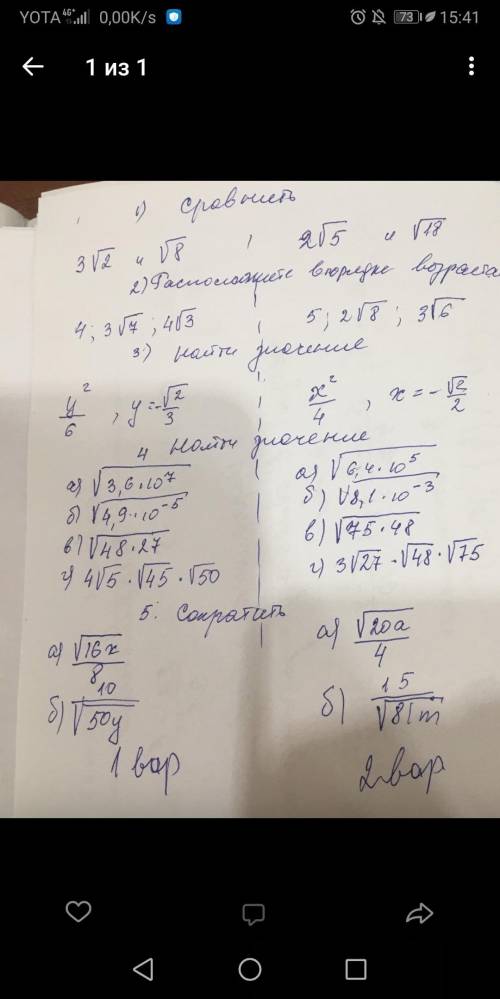 YOTA 4G+ 0,00K/s 73 15:41
1 из 1
1) Сравнить
3√2 и √8 , 2√5 и √18
2) Расположите в порядке возраста
4; 3√7; 4√3 5; 2√8; 3√6
3) Найти значение
y²/6, y = -√2/3 x²/4, x = -√2/2
4 Найти значение
а) √(3,6·10⁷) а) √(6,4·10⁵)
б) √(4,9·10⁻⁵) б) √(8,1·10⁻³)
в) √(48·27) в) √(75·48)
г) 4√5·√45·√50 г) 3√27·√48·√75
5. Сократить
а) √(16x)/8 а) √(20a)/4
б) 10/√(50y) б) 15/√(81m)
1 вар 2 вар